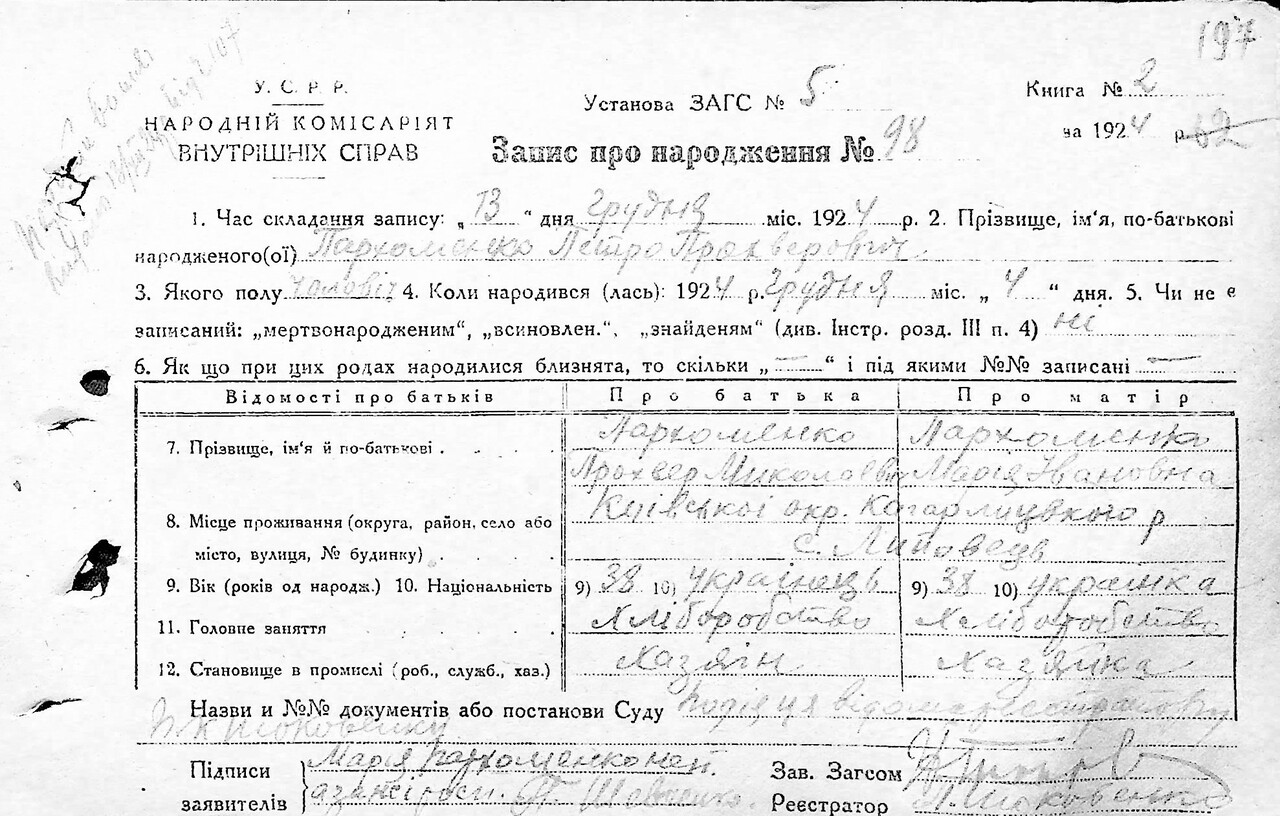 197
У. С. Р. Р.
НАРОДНІЙ КОМІСАРІЯТ
ВНУТРІШНІХ СПРАВ
Установа ЗАГС № 5
Книга № 2
за 1924 р. 62
Запис про народження № 98
1. Час складання запису: „ 13 “ дня грудня міс. 1924 р. 2. Прізвище, ім'я, по-батькові
народженого(ої) Пархоменко Петро Прохверович
3. Якого полу чоловіч 4. Коли народився (лась): 1924 р. грудня міс. „ 4 “ дня. 5. Чи не є
записаний: „мертвонародженим“, „всиновлен.“, „знайденям“ (див. Інстр. розд. III п. 4) ні
6. Як що при цих родах народилися близнята, то скільки „ — “ і під якими №№ записані —
Відомості про батьків Про батька Про матір
7. Прізвище, ім'я й по-батькові . . . . Пархоменко Пархоменка
Прохвер Миколаєви Марія Івановна
8. Місце проживання (округа, район, село або Київської окр. Кагарлицького р
місто, вулиця, № будинку) . . . с. Липовець
9. Вік (років од народж.) 10. Національність 9) 38 10) українець 9) 38 10) українка
11. Головне заняття . . . . Хліборобство Хліборобство
12. Становище в промислі (роб., служб., хаз.) Хазяїн Хазяйка
Назви и №№ документів або постанови Суду Подія ця відома реєстратору
Підписи Марія Пархоменко
заявителів
Зав. Загсом
Реєстратор